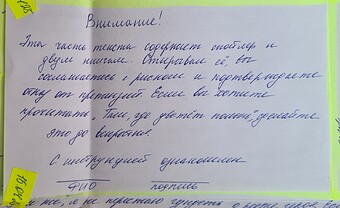 Внимание!
Эта часть текста содержит спойлер к
двум книгам. Открывая её, вы
соглашаетесь с риском и подтверждаете
отказ от претензий. Если вы хотите
прочитать „Там, где цветёт полынь“, сделайте
это до вскрытия.
С инструкцией ознакомлен
ФИО подпись
15.04
же, я не перестаю